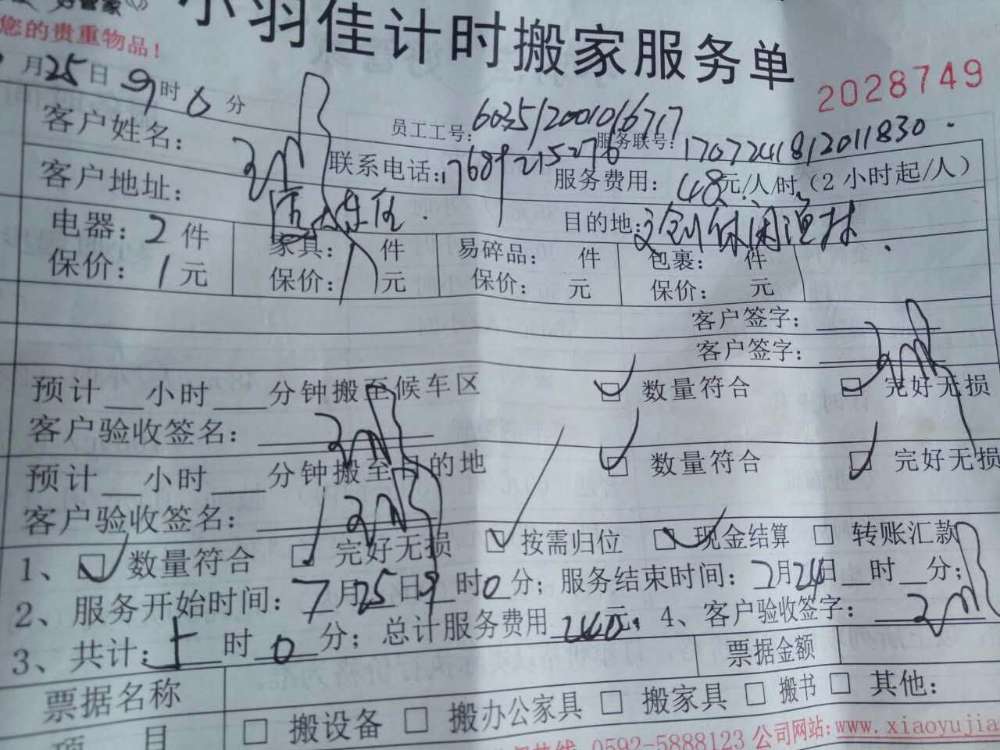 好管家
您的贵重物品！
小羽佳计时搬家服务单
2028749
月25日9时0分
员工工号：6035/20010/6717
服务联号：1707241812011830.
客户姓名：
联系电话：17689215276
服务费用：48元/人/时（2小时起/人）
客户地址：
目的地：文创休闲渔村
电器：2件 家具： 件 易碎品： 件 包裹： 件
保价：1元 保价： 元 保价： 元 保价： 元
客户签字：
客户签字：
预计__小时___分钟搬至候车区 ☑数量符合 ☑完好无损
客户验收签名：
预计__小时___分钟搬至目的地 ☑数量符合 ☑完好无损
客户验收签名：
1、☑数量符合 ☑完好无损 ☑按需归位 ☑现金结算 □转账汇款
2、服务开始时间：7月25日9时0分；服务结束时间：7月24日__时__分；
3、共计： 时0分；总计服务费用240元。4、客户验收签字：
票据名称 票据金额
项目 □搬设备 □搬办公家具 □搬家具 □搬书 □其他：
热线 0592-5888123 公司网站：www.xiaoyujia